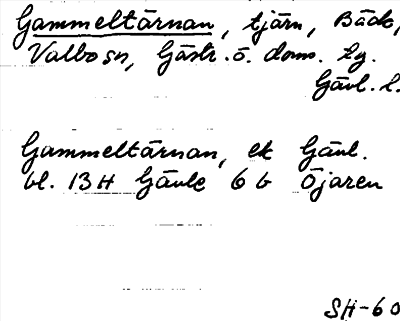 Gammeltärnan, tjärn, Bäck,
Valbo sn, Gästr. ö. doms. tg.
Gävl. l.
Gammeltärnan, ek Gävl.
bl. 13H Gävle 6 b Öjaren
SH-60